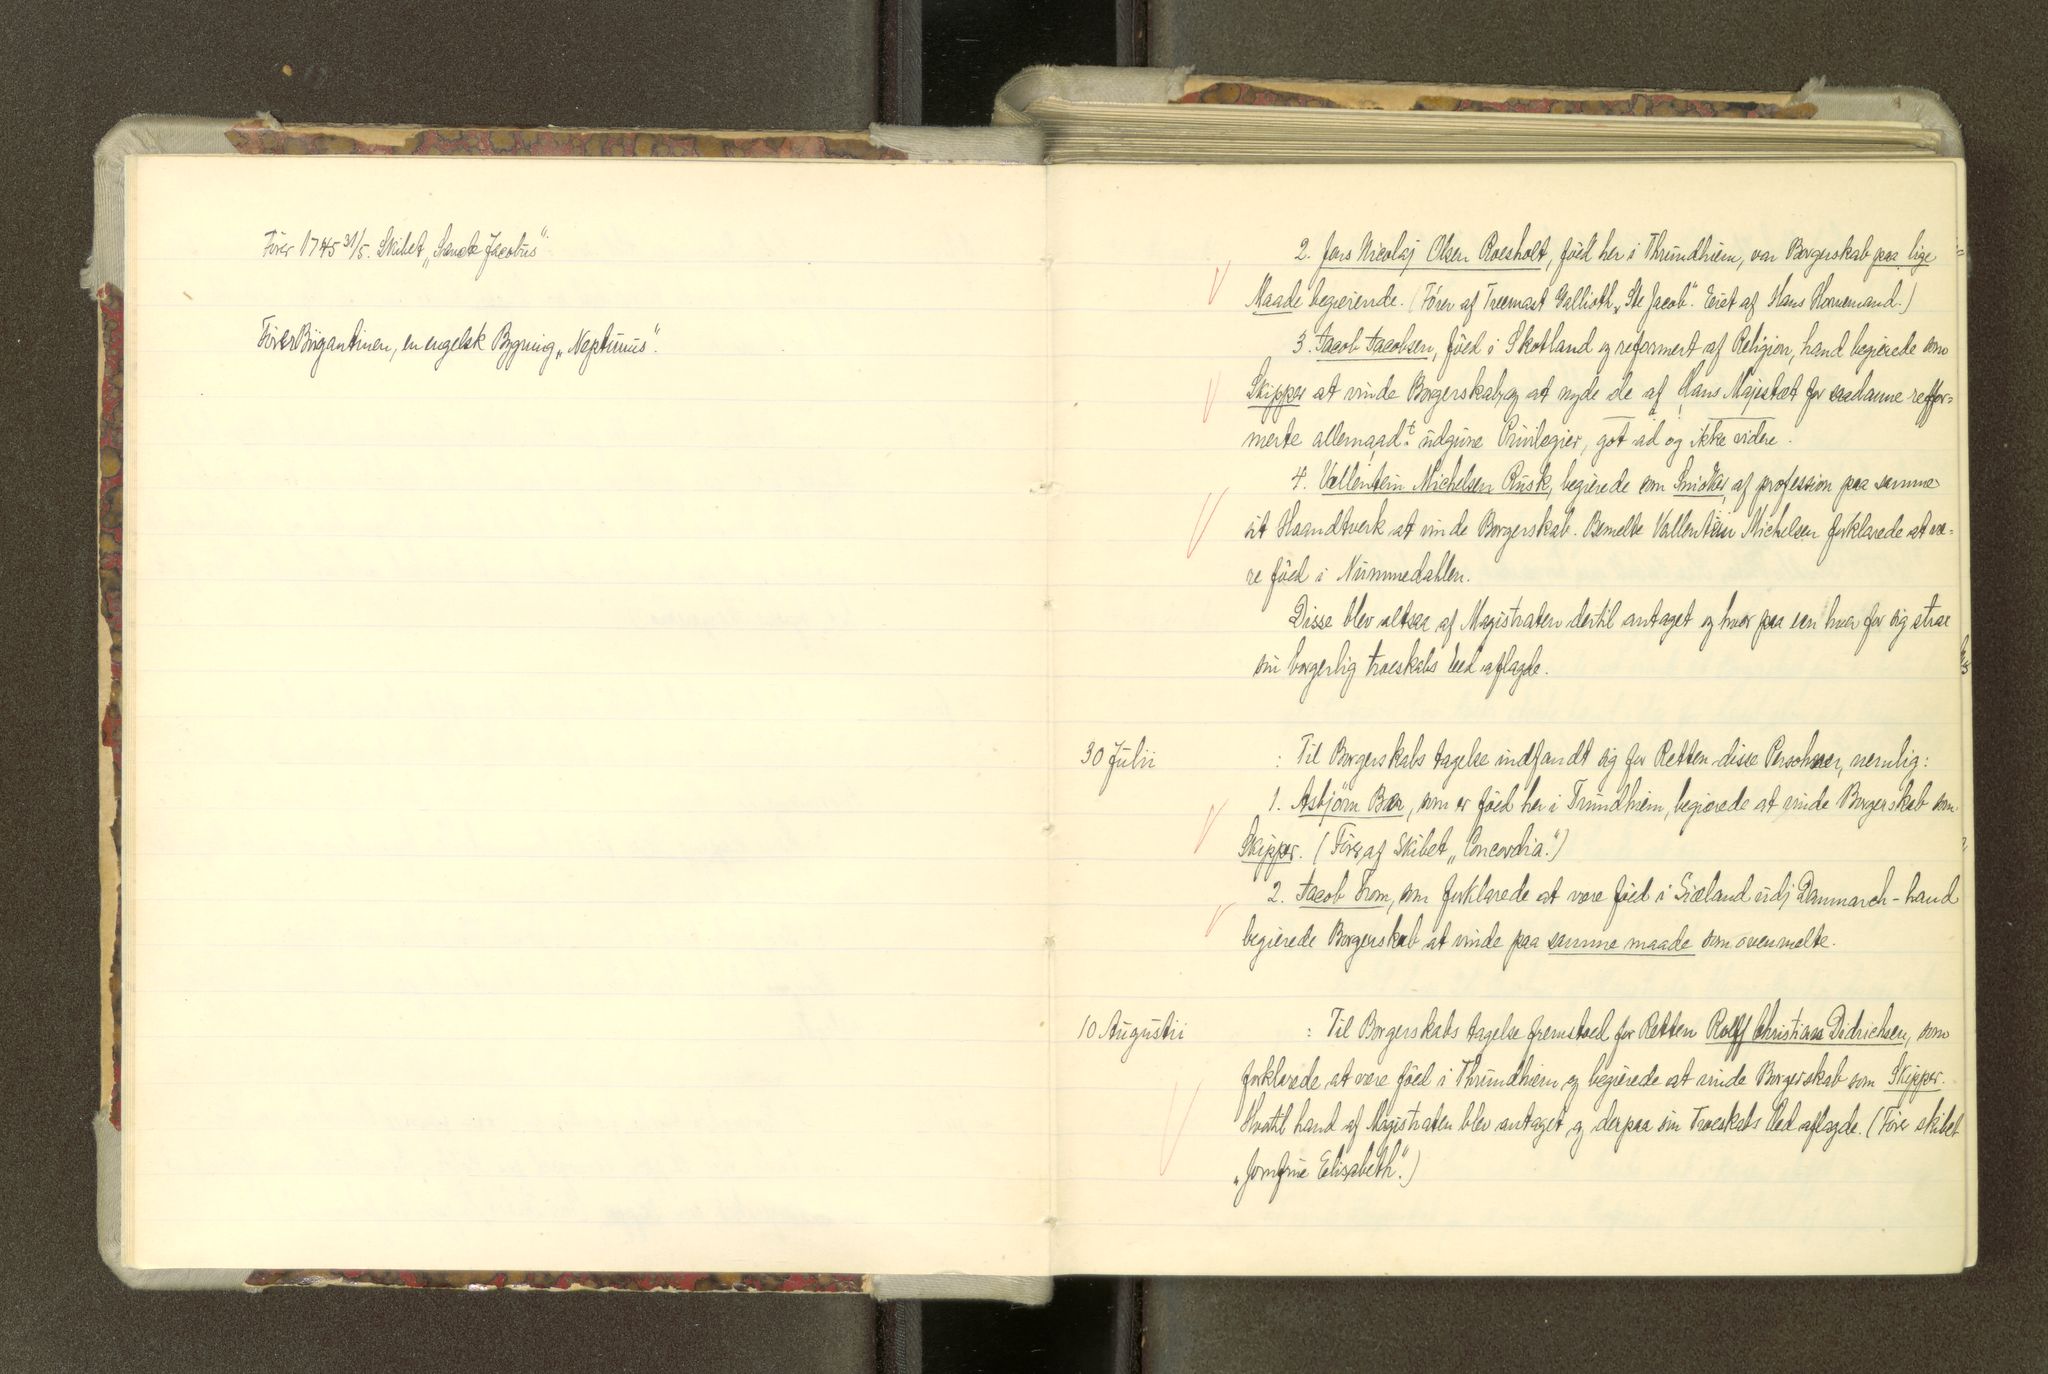 Fører 1745 31/5. Skibet „Sanct Jacobus“.
Fører Brigantinen, en engelsk Bygning „Neptunus“.
2. Jens Nicolaj Olsen Roesholt, föed her i Thrundhiem, var Borgerskab paa lige
Maade begierende. (Förer af Treemast Gallioth „Ste Jacob“. Eiet af Hans Hornemand.)
3. Jacob Jacobsen, föed i Skotland og reformert af Religion, hand begierede som
Skipper at vinde Borgerskab, og at nyde de af Hans Majestæt for saadanne reffor=
merte allernaad:t udgivne Privilegier, got ad og ikke videre.
4. Vallentin Michelsen Rusk, begierede som Snidker af profession paa samme
sit Haandtverk at vinde Borgerskab. Bemelte Vallentin Michelsen forklarede at væ=
re föed i Nummedahlen.
Disse blev altsaa af Magistraten dertil antaget og hvor paa een hver for sig strax
sin borgerlig troeskabs Eed aflagde.
30 Julii : Til Borgerskabs tagelse indfandt sig for Retten disse Personer, nemlig:
1. Asbjörn Bær, som er föed her i Trundhiem, begierede at vinde Borgerskab som
Skipper. (Förer af Skibet „Concordia“.)
2. Jacob From, som forklarede at være föed i Siæland udj Danmarch - hand
begierede Borgerskab at vinde paa samme maade som ovenmelte.
10 Augustii : Til Borgerskabs tagelse fremstoed for Retten Rolff Christian Didrichsen, som
forklarede at være föed i Thrundhiem og begierede at vinde Borgerskab som Skipper.
Hvortil hand af Magistraten blev antaget og derpaa sin Troeskabs Eed aflagde. (Förer skibet
„Jomfrue Elisabeth“.)